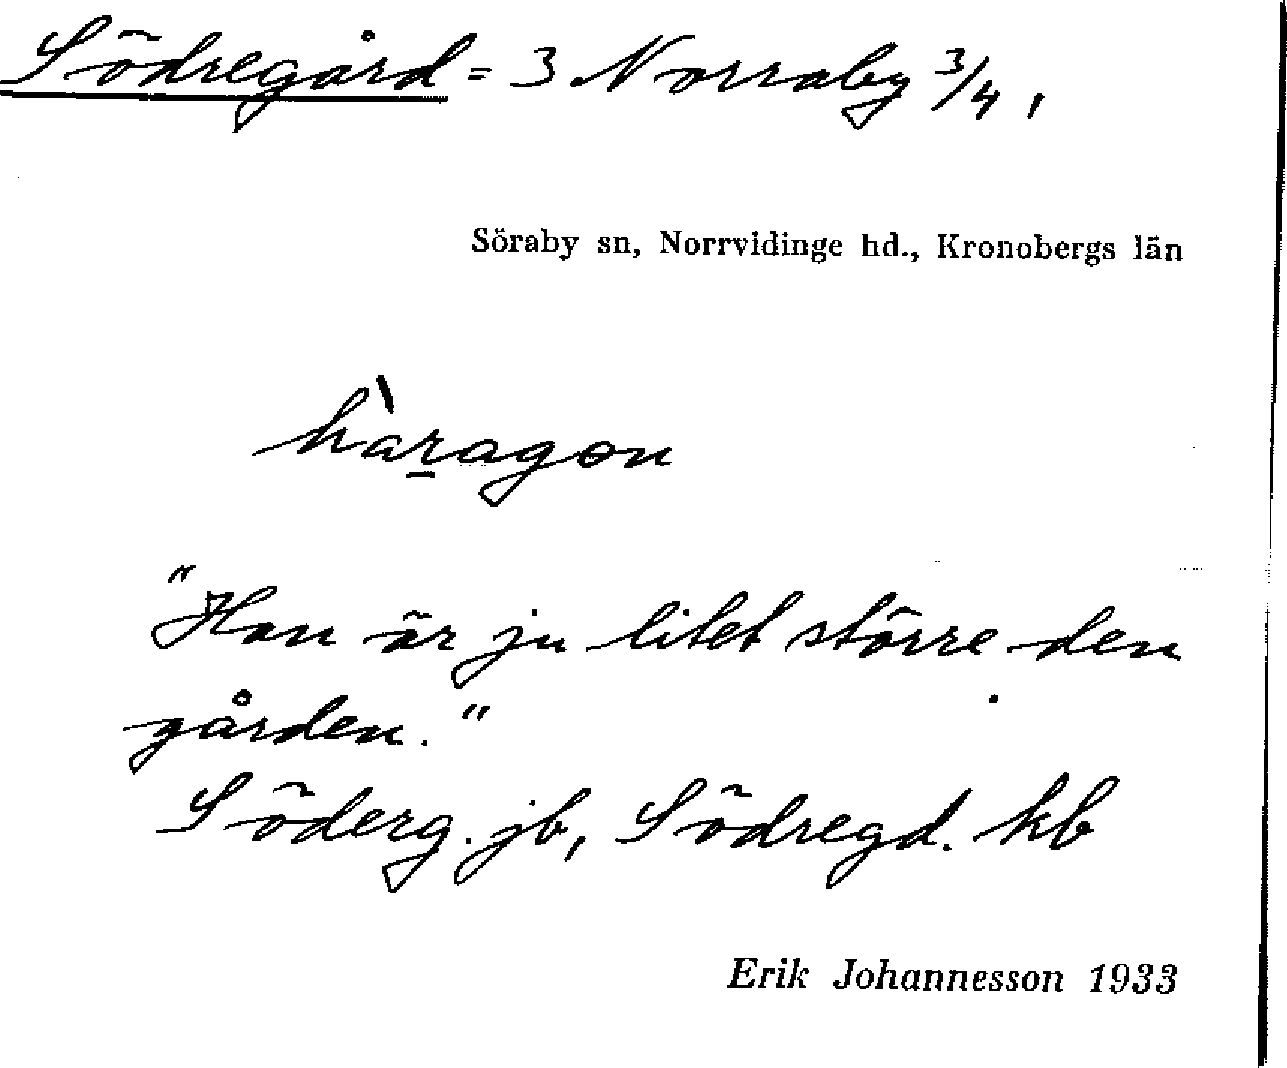 Södregård = 3 Norraby 3/4,
Söraby sn, Norrvidinge hd., Kronobergs län
hàr̲agon
"Han är ju litet större den
gården."
Söderg. jb, Södregd. kb
Erik Johannesson 1933